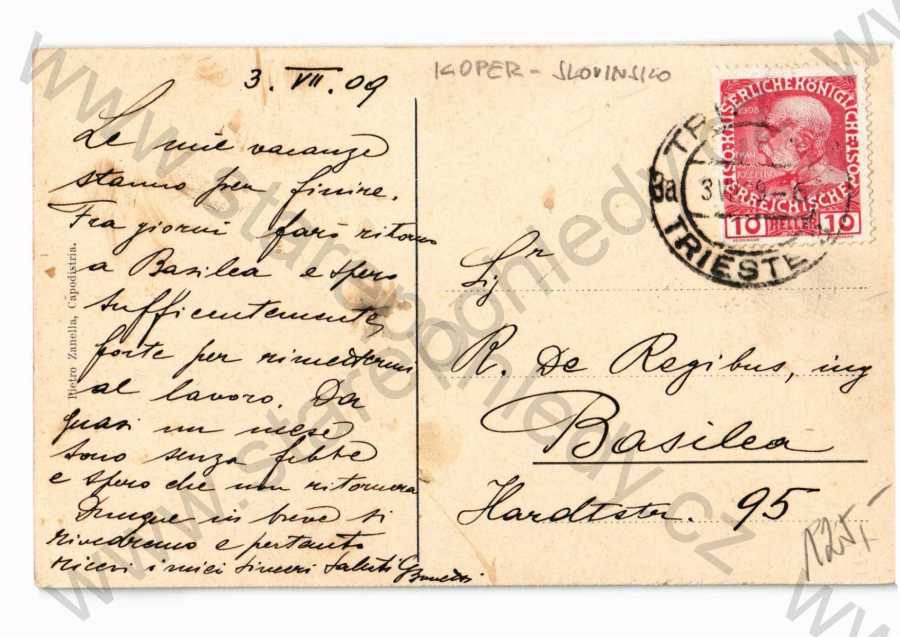 3. VII. 09
KOPER - SLOVINSKO
Le mie vacanze
stanno per finire.
Fra giorni farò ritorno
a Basilea e spero
sufficientemente
forte per rimettermi
al lavoro. Da
quasi un mese
sono senza febbre
e spero che non ritornerà
Dunque in breve ci
rivedremo e pertanto
ricevi i miei sinceri saluti
Pietro Zanella, Capodistria.
KAISERLICHE KÖNIGLICHE
ÖSTERREICHISCHE
1908
FRANZ
JOSEF I.
10 HELLER 10
TRIESTE
3a
Sigr
R. De Regibus, ing
Basilea
Hardtstr. 95
125,-
www.starepohledy.cz
www.starepohledy.cz